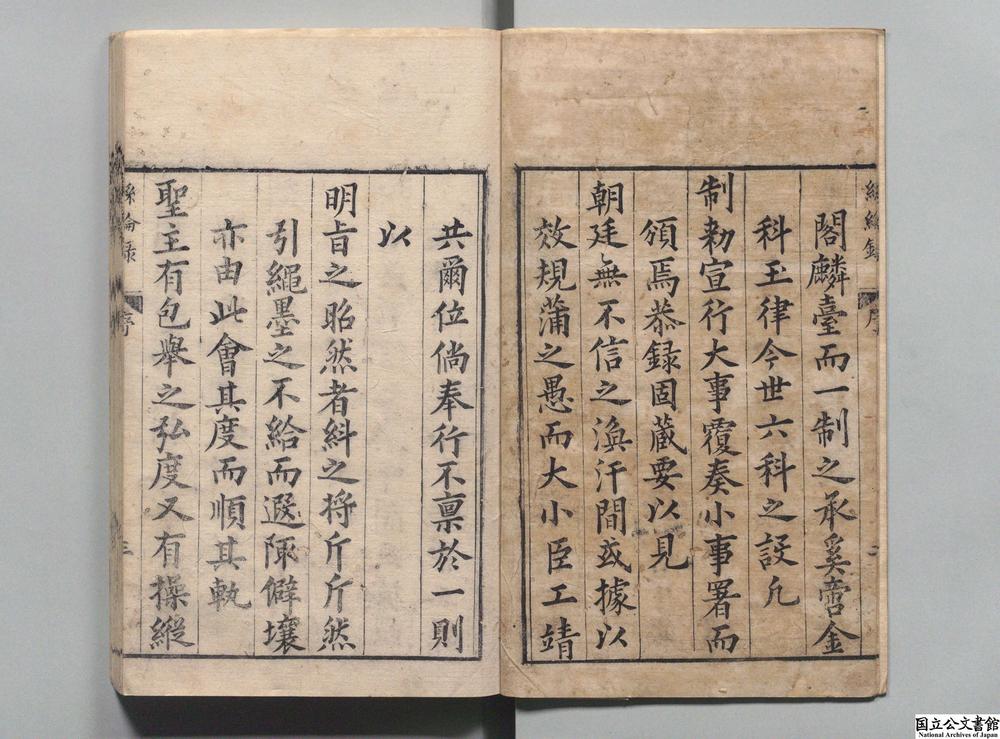 閣麟臺而一制之承奚啻金
科玉律今世六科之設凡
制勑宣行大事覆奏小事署而
頒焉恭録固蔵要以見
朝廷無不信之渙汗間或據以
效規蒲之愚而大小臣工靖
絲綸録
序
共爾位倘奉行不禀於一則
以
明旨之昭然者糾之将斤斤然
引繩墨之不給而遐陬僻壤
亦由此會其度而順其軌
聖主有包舉之弘度又有操縱
絲綸録
序
三
国立公文書館
National Archives of Japan